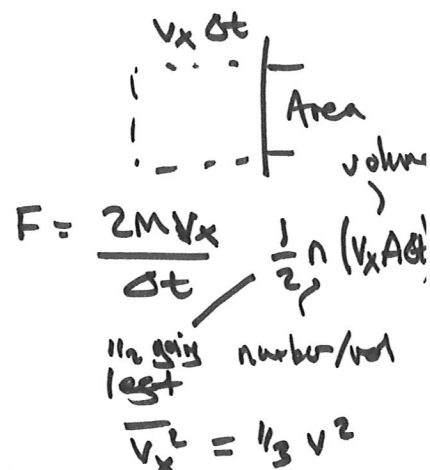 Vx Δt
Area
volume
F = 2MVx / Δt 1/2 n (VxAΔt
1/2 going number/vol
left
V̅x² = 1/3 v²